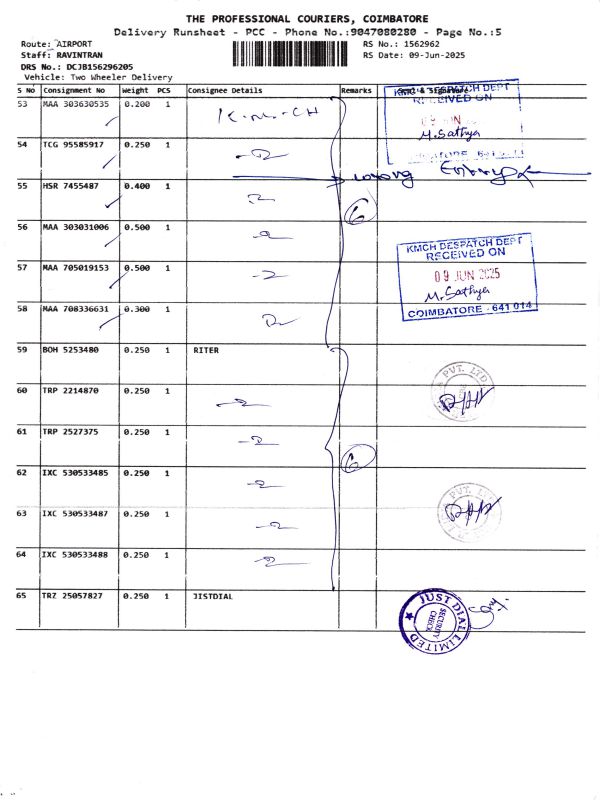 THE PROFESSIONAL COURIERS, COIMBATORE
Delivery Runsheet - PCC - Phone No.:9047080280 - Page No.:5
Route: AIRPORT RS No.: 1562962
Staff: RAVINTRAN RS Date: 09-Jun-2025
DRS No.: DCJB156296205
Vehicle: Two Wheeler Delivery
S No Consignment No Weight PCS Consignee Details Remarks
KMCH DESPATCH DEPT
RECEIVED ON
53 MAA 303630535 0.200 1 K.M.CH
09 JUN
M. Sathya
54 TCG 95585917 0.250 1
wrong Entry
55 HSR 7455487 0.400 1
6
56 MAA 303031006 0.500 1
KMCH DESPATCH DEPT
RECEIVED ON
57 MAA 705019153 0.500 1
09 JUN 2025
M. Sathya
58 MAA 708336631 0.300 1
COIMBATORE - 641 014
59 BOH 5253480 0.250 1 RITER
PVT. LTD
60 TRP 2214870 0.250 1
61 TRP 2527375 0.250 1
6
62 IXC 530533485 0.250 1
PVT. LTD
63 IXC 530533487 0.250 1
64 IXC 530533488 0.250 1
65 TRZ 25057827 0.250 1 JISTDIAL
JUST DIAL LIMITED
SECURITY
CHECK